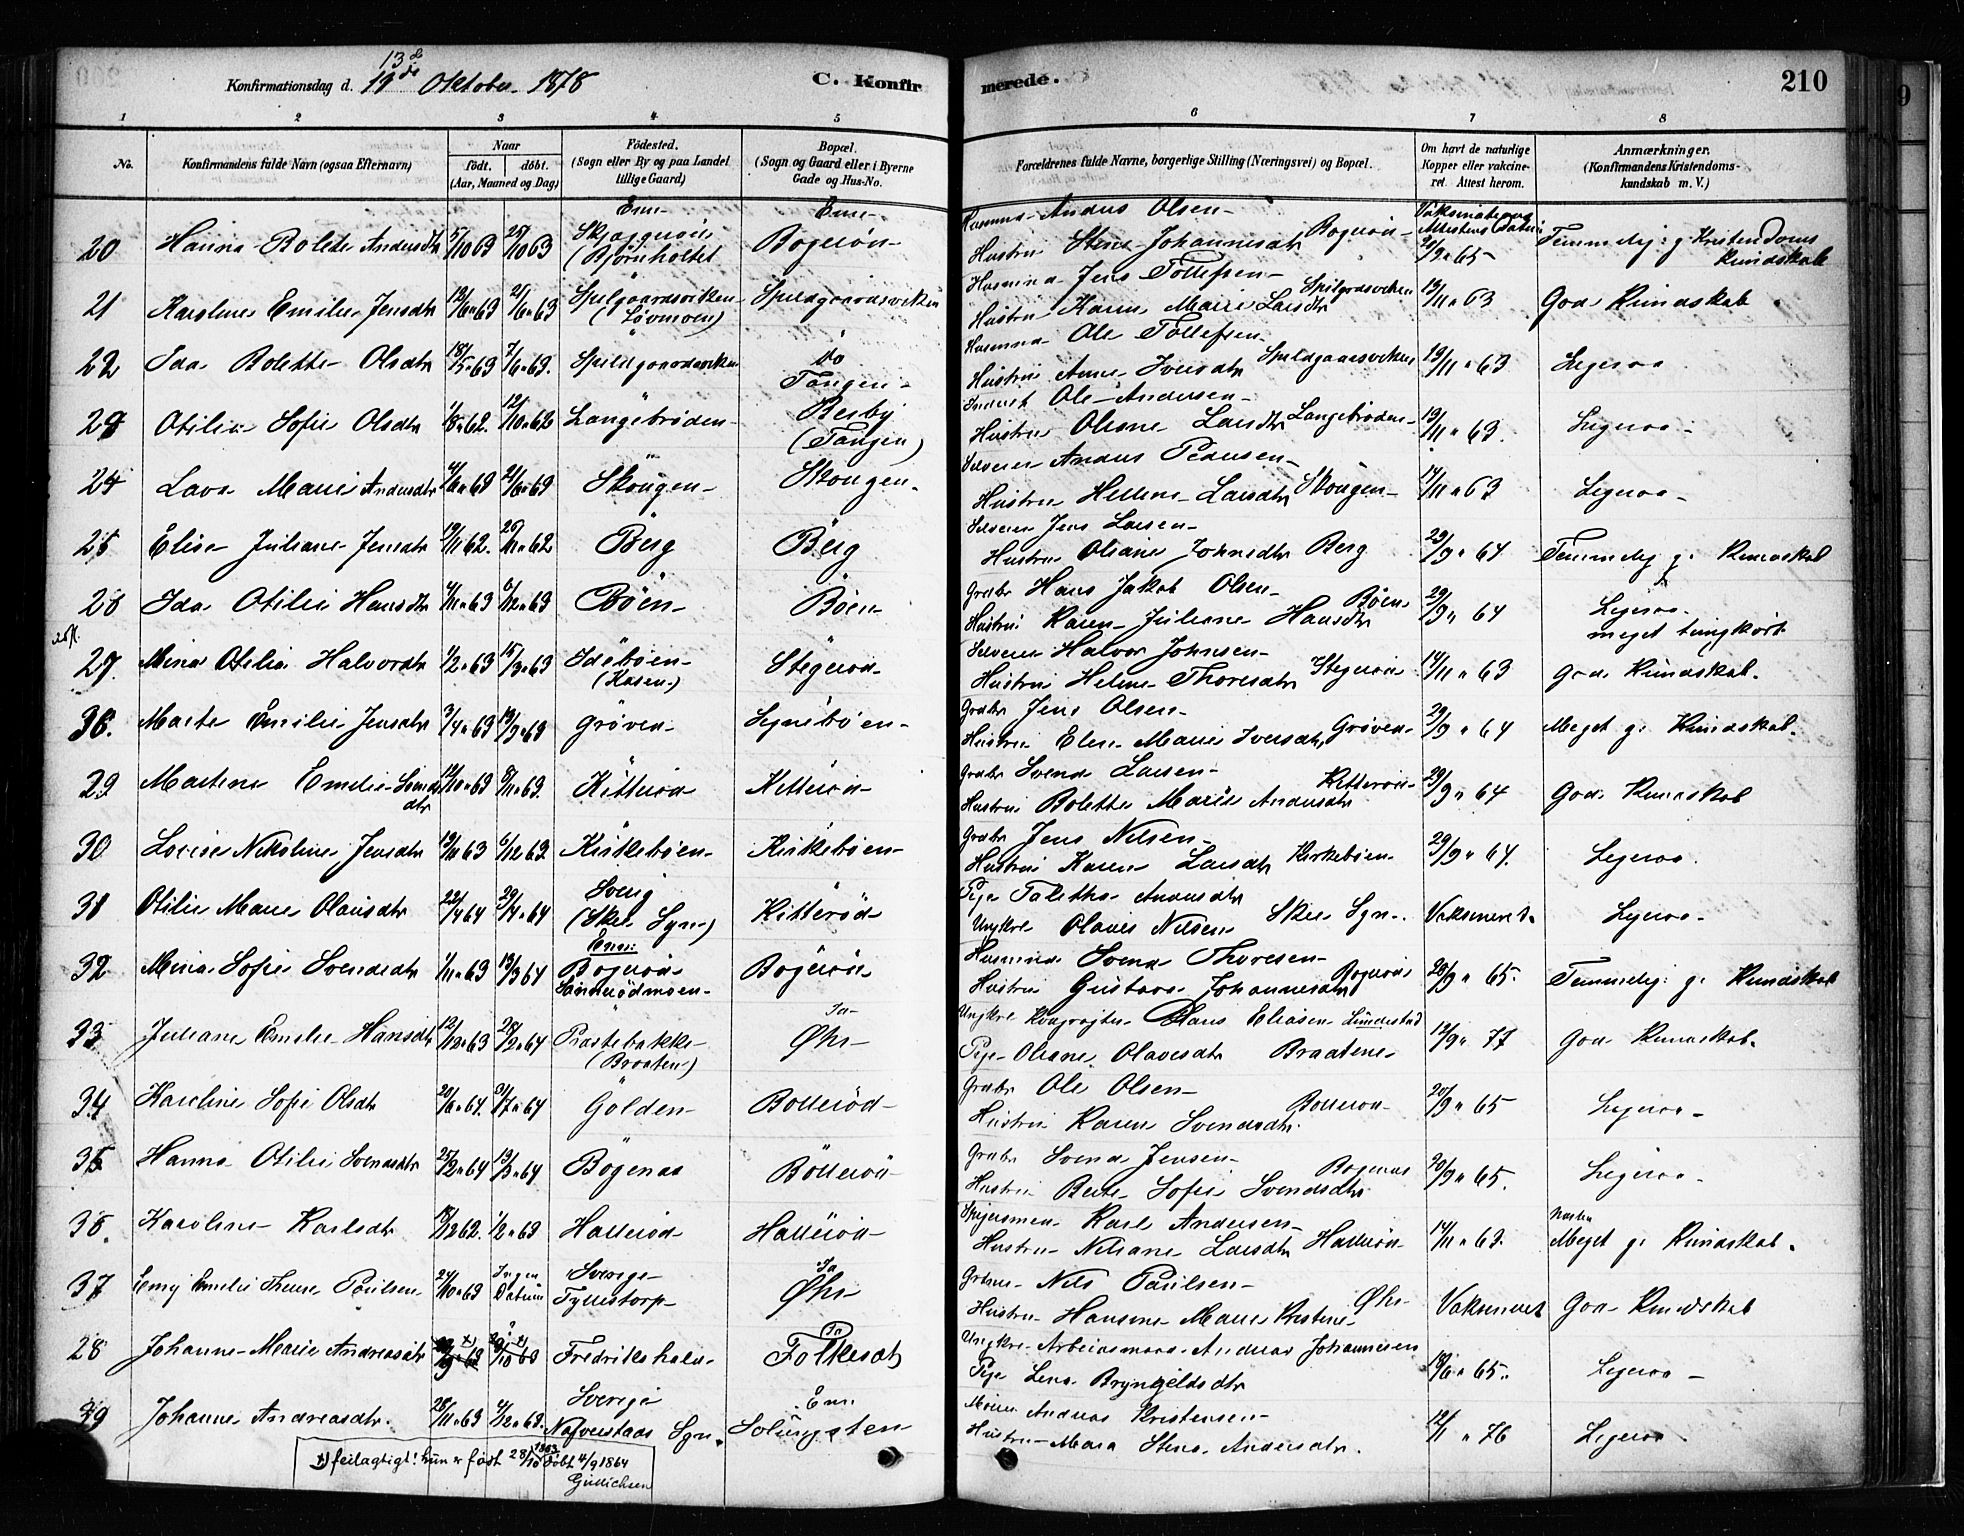 13de
Konfirmationsdag d. 19de Oktober 1878
C. Konfir
merede.
210
1 2 3 4 5 6 7 8
No.
Konfirmandens fulde Navn (ogsaa Efternavn)
Naar
født. døbt.
(Aar, Maaned og Dag)
Fødested.
(Sogn eller By og paa Landet
tillige Gaard)
Bopæl.
(Sogn og Gaard eller i Byerne
Gade og Hus-No.
Forældrenes fulde Navne, borgerlige Stilling (Næringsvei) og Bopæl.
Om havt de naturlige
Kopper eller vakcine-
ret. Attest herom.
Anmærkninger.
(Konfirmandens Kristendoms-
kundskab m. V.)
20 Hanna Bolette Andersdtr 5/10 63 25/10 63 Enn. (Bjørnholtet Enn. Bøgerød
Husmnd Anders Olsen
Hustru Stine Johannesdtr Bøgerød 20/9 65 Temmelig g. Kristendoms
Kundskab
21 Karoline Emilie Jensdtr 12/6 63 21/6 63 Spilgaardsviken (Løvmoen) Speldgaardsviken
Husmnd Jens Tollefsen
Hustru Karen Marie Larsdtr 19/11 63 God Kundskab
22 Ida Bolette Olsdtr 18/5 63 7/6 63. Speldgaardsviken do Tangen
Husmnd Ole Tollefsen
Hustru Anne Iversdtr Speldgaardsviken 19/11 63 Ligesaa
23 Otilia Sofie Olsdtr 1/8 62. 12/10 62 Langebrøden Berby (Tangen)
Ole Andersen
Hustru Oleane Larsdtr Langebrøden 19/11 63. Ligesaa
24 Lava Marie Andersdtr 4/6 63 21/6 63 Skougen Skougen
Selveier Anders Pedersen
Hustru Hellene Larsdtr Skougen 14/11 63 Ligesaa
25 Elise Juliane Jensdtr 19/11 62. 26/11 62 Berg Berg
Selveier Jens Larsen
Hustru Oliane Johnsdtr Berg 29/9 64 Temmelig g. Kundskab
26 Ida Otilie Hansdtr 4/11 63 6/12 63 Bøen Bøen
Grdbr Hans Jakob Olsen Bøen
Hustru Karen Juliane Hansdtr 29/9 64 Ligesaa.
meget tunghørt
27. Mina Otilia Halvorsdtr 1/2 63 15/3 63 Idebøen (Kasen) Stegerød
Selveier Halvor Johnsen
Hustru Helene Thoresdtr Stegerød 14/11 63 god Kundskab.
Marte Emilie Jensdtr 3/4 63 19/9 63 Grøven Signebøen
Grdbr Jens Olsen
Hustru Elen Marie Iversdtr Grøven 29/9 64 Meget g. Kundskab.
29 Martine Emelie Svendsdtr 63. Kitterød Kitterød
Grdbr Svend Larsen Kitterød
Hustru Bolette Marie Andersdtr 29/9 64 God Kundskab
30 Lovise Nikoline Jensdtr 63 6/12 63 Kirkebøen Kirkebøen
Grdbr Jens Nilsen
Hustru Karen Larsdtr Kirkebøen 29/9 64. Ligesaa.
31 Otilie Marie Olausdtr 22/4 64 29/4 64 Sverig (Skee Sgn) Kitterød
Pige Talitha Andersdtr
Ungkrl Olaves Nilsen Skee Sgn. Vaksineret. Ligesaa
32 Mina Sofie Svendsdtr 1/11 63 13/3 64 Enn: Bøgerød Bøgerød
Husmnd Svend Thoresen Bøgerød
Hustru Gustava Johannesdtr 20/9 65. Temmelig g. Kundskab
33 Juliane Emelie Hansdtr 12/12 63 28/2 64 Præstebakke (Braaten) Id Øhr
Ungkrl Hans Eliasen Lundestad
Pige Oliane Olavesdtr Braatene 12/9 77 God Kundskab.
34 Karoline Sofie Olsdtr 20/6 64. 31/7 64 Golden Bøllerød
Grdbr Ole Olsen
Hustru Karen Svendsdtr Bøllerød 20/9 65 Ligesaa
35 Hanna Otilie Svendsdtr 25/2 64 13/3 64 Bøgenæs Bøllerød
Grdbr Svend Jensen Bøgenæs
Hustru Berte Sofie Svendsdtr 20/9 65. Ligesaa
Karoline Karlsdtr 62. 1/2 63 Hallerød Hallerød
Karl Andersen
Hustru Niliane Larsdtr Hallerød 14/11 63. Næsten
Meget g. Kundskab.
37 Emy Emelie Paulsen 24/10 63 Ingen Datum Sverige Id Øhr
Nils Paulsen Øhr
Hustru Hansine Marie Kristine Vaksineret God Kundskab
28 Johanne Marie Andreasdtr Fredrikshald Id Folkesdt
Ungkrl Arbeidsmand Andreas Johannesen
Pige Lena Bryngeldsdtr 18/6 65. Ligesaa
39 Johanne Andreasdtr. 28/11 63 4/12 63. Sverige Nafverstads Sgn. Enn. Solungsten
Andreas Kristensen
Hustru Maria Stina Andersdtr. 12/1 76 Ligesaa
x) feilagtigt! hun er født 28/10 1863 døbt 4/9 1864
Gullichsen